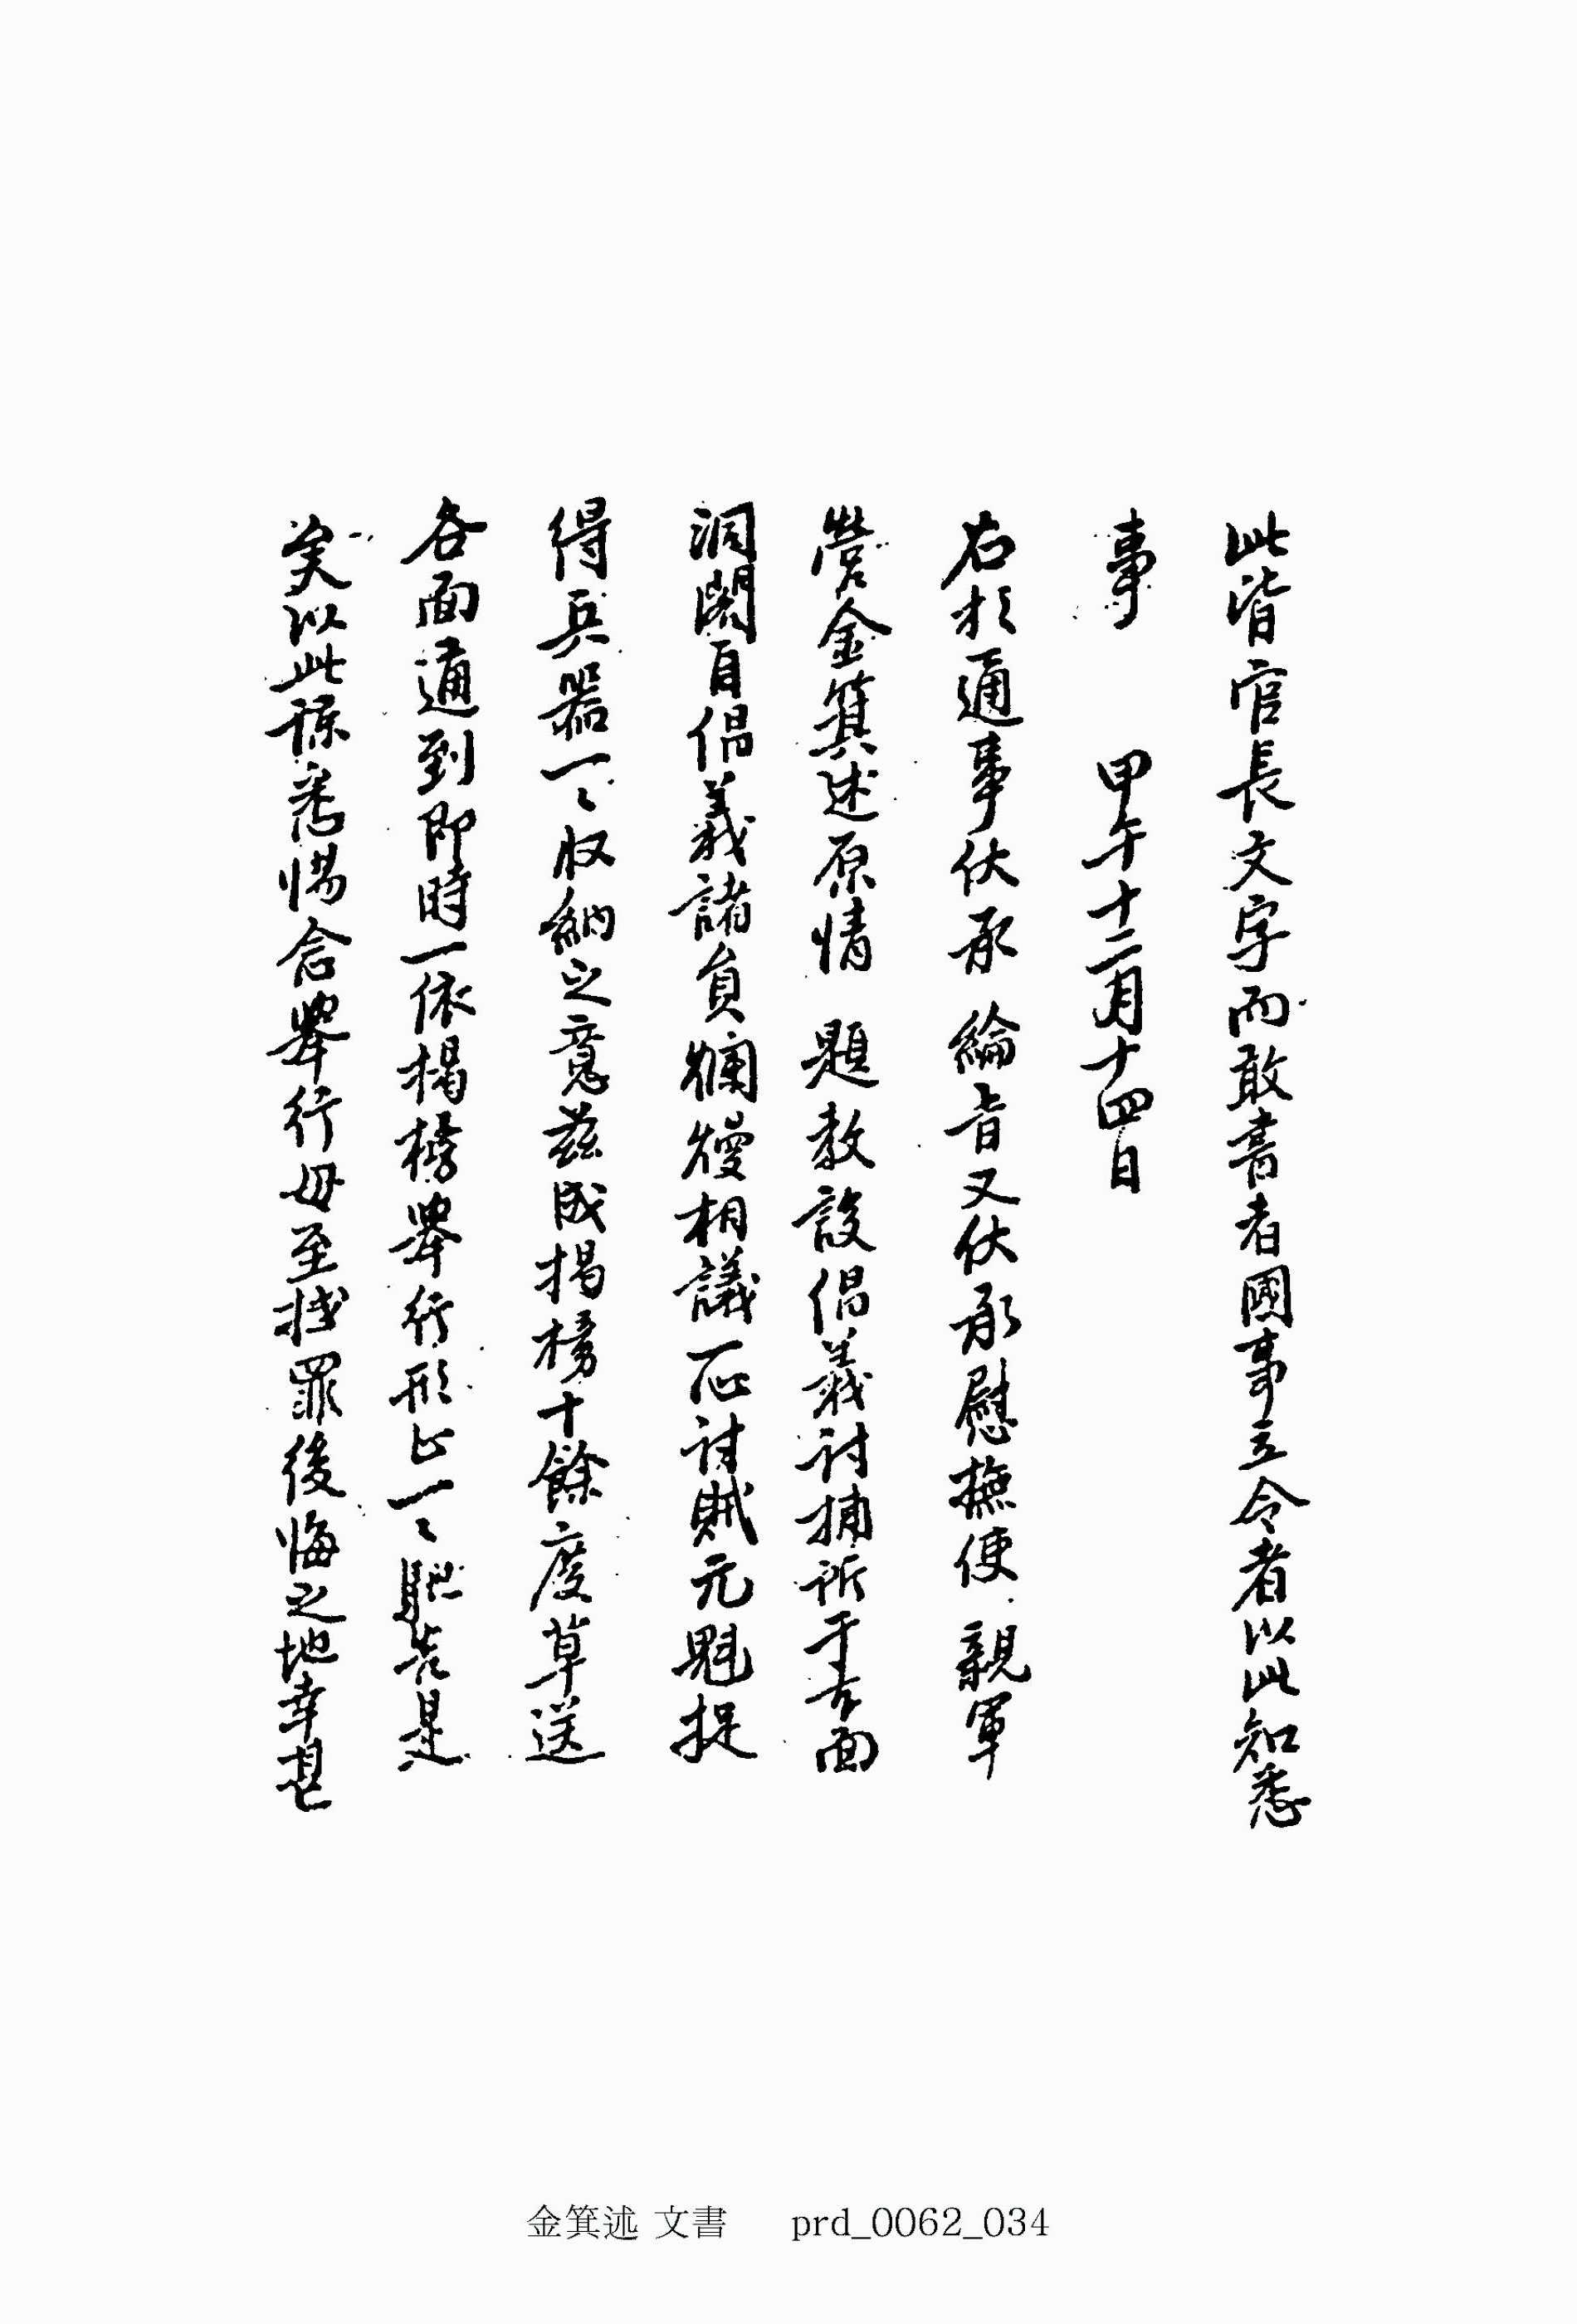 此皆官長文字而敢書者國事立令者以此知悉
事 甲午十二月十四日
右於通事伏承 綸音又伏承慰撫使 親軍
營金箕述原情 題教設倡義討捕所于古面
洞閣自倡義諸員爛熳相議一心討賊元魁捉
得兵器一〻收納之意玆成揭榜十餘度草送
各面通到即時一依揭榜擧行形止一〻馳告是
矣以此諒悉惕念擧行毋至抵罪後悔之地幸甚
金箕述 文書 prd_0062_034